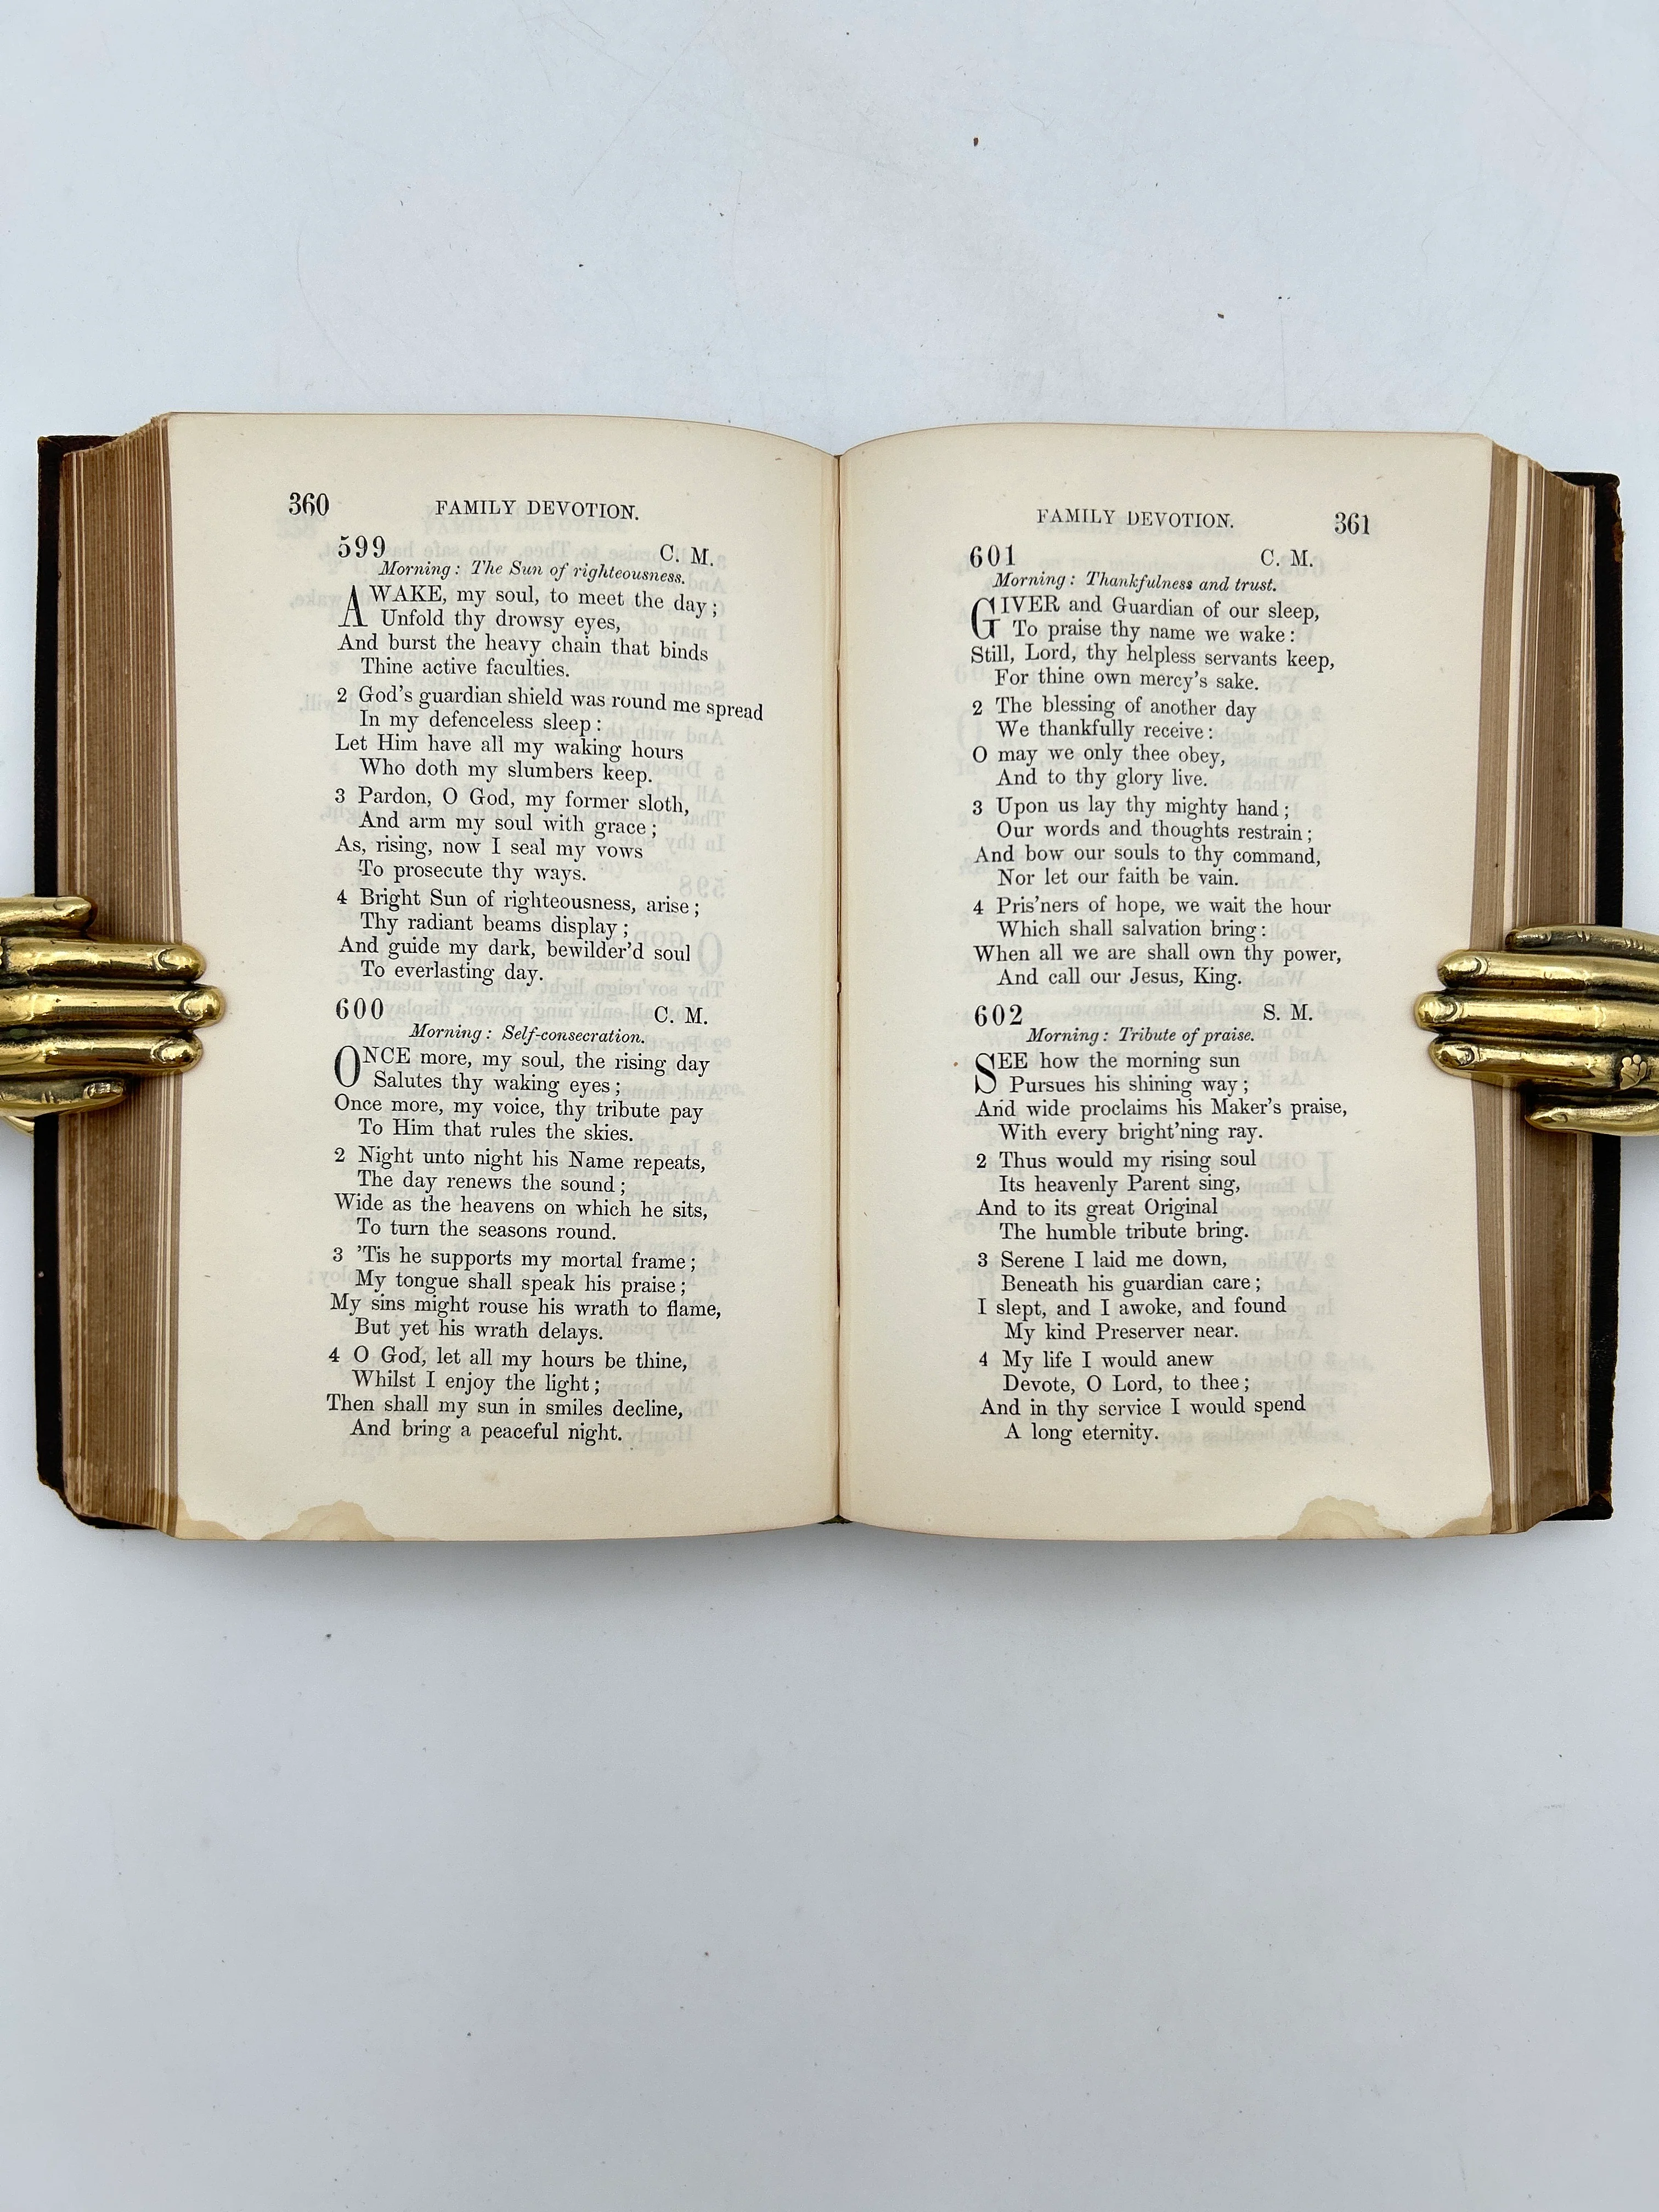 360 FAMILY DEVOTION.
599 C. M.
Morning: The Sun of righteousness.
AWAKE, my soul, to meet the day;
Unfold thy drowsy eyes,
And burst the heavy chain that binds
Thine active faculties.
2 God's guardian shield was round me spread
In my defenceless sleep:
Let Him have all my waking hours
Who doth my slumbers keep.
3 Pardon, O God, my former sloth,
And arm my soul with grace;
As, rising, now I seal my vows
To prosecute thy ways.
4 Bright Sun of righteousness, arise;
Thy radiant beams display;
And guide my dark, bewilder'd soul
To everlasting day.
600 C. M.
Morning: Self-consecration.
ONCE more, my soul, the rising day
Salutes thy waking eyes;
Once more, my voice, thy tribute pay
To Him that rules the skies.
2 Night unto night his Name repeats,
The day renews the sound;
Wide as the heavens on which he sits,
To turn the seasons round.
3 'Tis he supports my mortal frame;
My tongue shall speak his praise;
My sins might rouse his wrath to flame,
But yet his wrath delays.
4 O God, let all my hours be thine,
Whilst I enjoy the light;
Then shall my sun in smiles decline,
And bring a peaceful night.
FAMILY DEVOTION. 361
601 C. M.
Morning: Thankfulness and trust.
GIVER and Guardian of our sleep,
To praise thy name we wake:
Still, Lord, thy helpless servants keep,
For thine own mercy's sake.
2 The blessing of another day
We thankfully receive:
O may we only thee obey,
And to thy glory live.
3 Upon us lay thy mighty hand;
Our words and thoughts restrain;
And bow our souls to thy command,
Nor let our faith be vain.
4 Pris'ners of hope, we wait the hour
Which shall salvation bring:
When all we are shall own thy power,
And call our Jesus, King.
602 S. M.
Morning: Tribute of praise.
SEE how the morning sun
Pursues his shining way;
And wide proclaims his Maker's praise,
With every bright'ning ray.
2 Thus would my rising soul
Its heavenly Parent sing,
And to its great Original
The humble tribute bring.
3 Serene I laid me down,
Beneath his guardian care;
I slept, and I awoke, and found
My kind Preserver near.
4 My life I would anew
Devote, O Lord, to thee;
And in thy service I would spend
A long eternity.